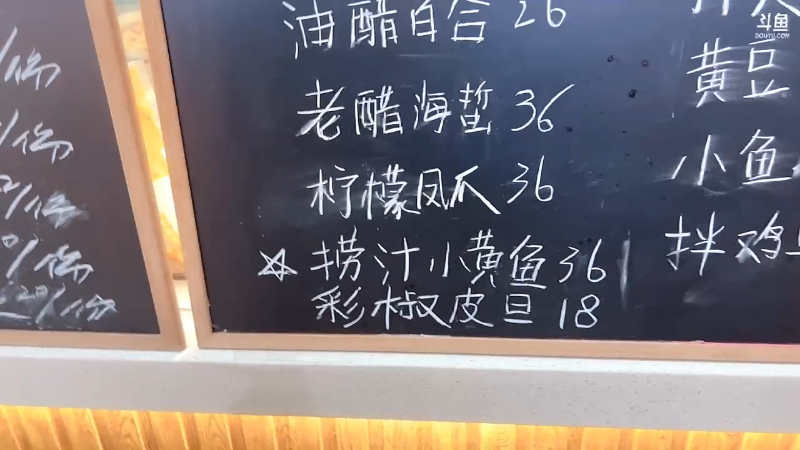 斗鱼
DOUYU.COM
油醋百合 26
老醋海蜇 36
柠檬凤爪 36
☆捞汁小黄鱼 36
彩椒皮旦 18
黄豆
小鱼
拌鸡
/份
/份
/份
/份
/份